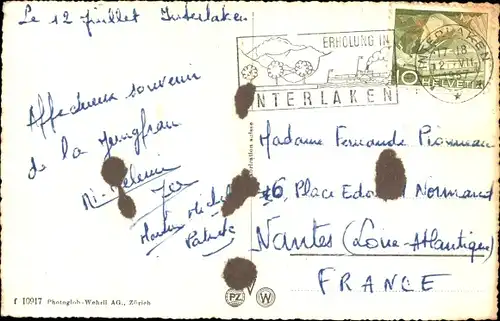 Le 12 juillet Interlaken
Affectueux souvenir
de la Jungfrau
Patrick
ERHOLUNG IN
INTERLAKEN
INTERLAKEN
17-18
12.VII
10 HELVETIA
Madame Fernande
6, Place Edouard Normand
Nantes (Loire-Atlantique)
FRANCE
f 10917 Photoglob-Wehrli AG., Zürich
PZ W